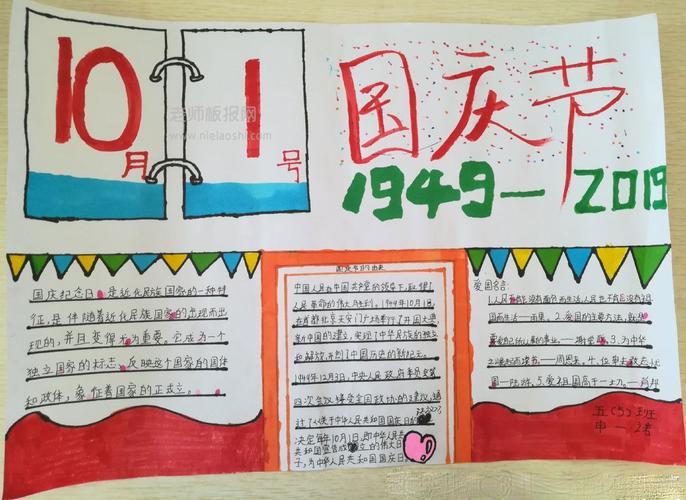 10月
1号
老师板报网
www.nielaoshi.com
国庆节
1949—2019
国庆纪念日是近代民族国家的一种特
征,是伴随着近代民族国家的出现而出
现的,并且变得尤为重要。它成为一个
独立国家的标志,反映这个国家的国体
和政体,象征着国家的正式立。
国庆节的由来
中国人民在中国共产党的领导下,取得了
人民革命的伟大胜利。1949年10月1日
在首都北京天安门广场举行了开国大典
新中国的建立,实现了中华民族的独立
和解放,开创了中国历史的新纪元。
1949年12月3日,中央人民政府委员会第
四次会议接受全国政协的建议,通
过了《关于中华人民共和国国庆日的
决定每年10月1日,即中华人民共
共和国宣告成立的伟大日
子,为中华人民共和国国庆日。
爱国名言:
而生活——雨果。2.爱国的主要方法,就
要爱自己所从事的事业——谢觉哉。3.为中华
之崛起而读书——周恩来。4.位卑未敢忘忧
国——陆游。5.爱祖国高于一切。——肖邦
五(5)班
申一